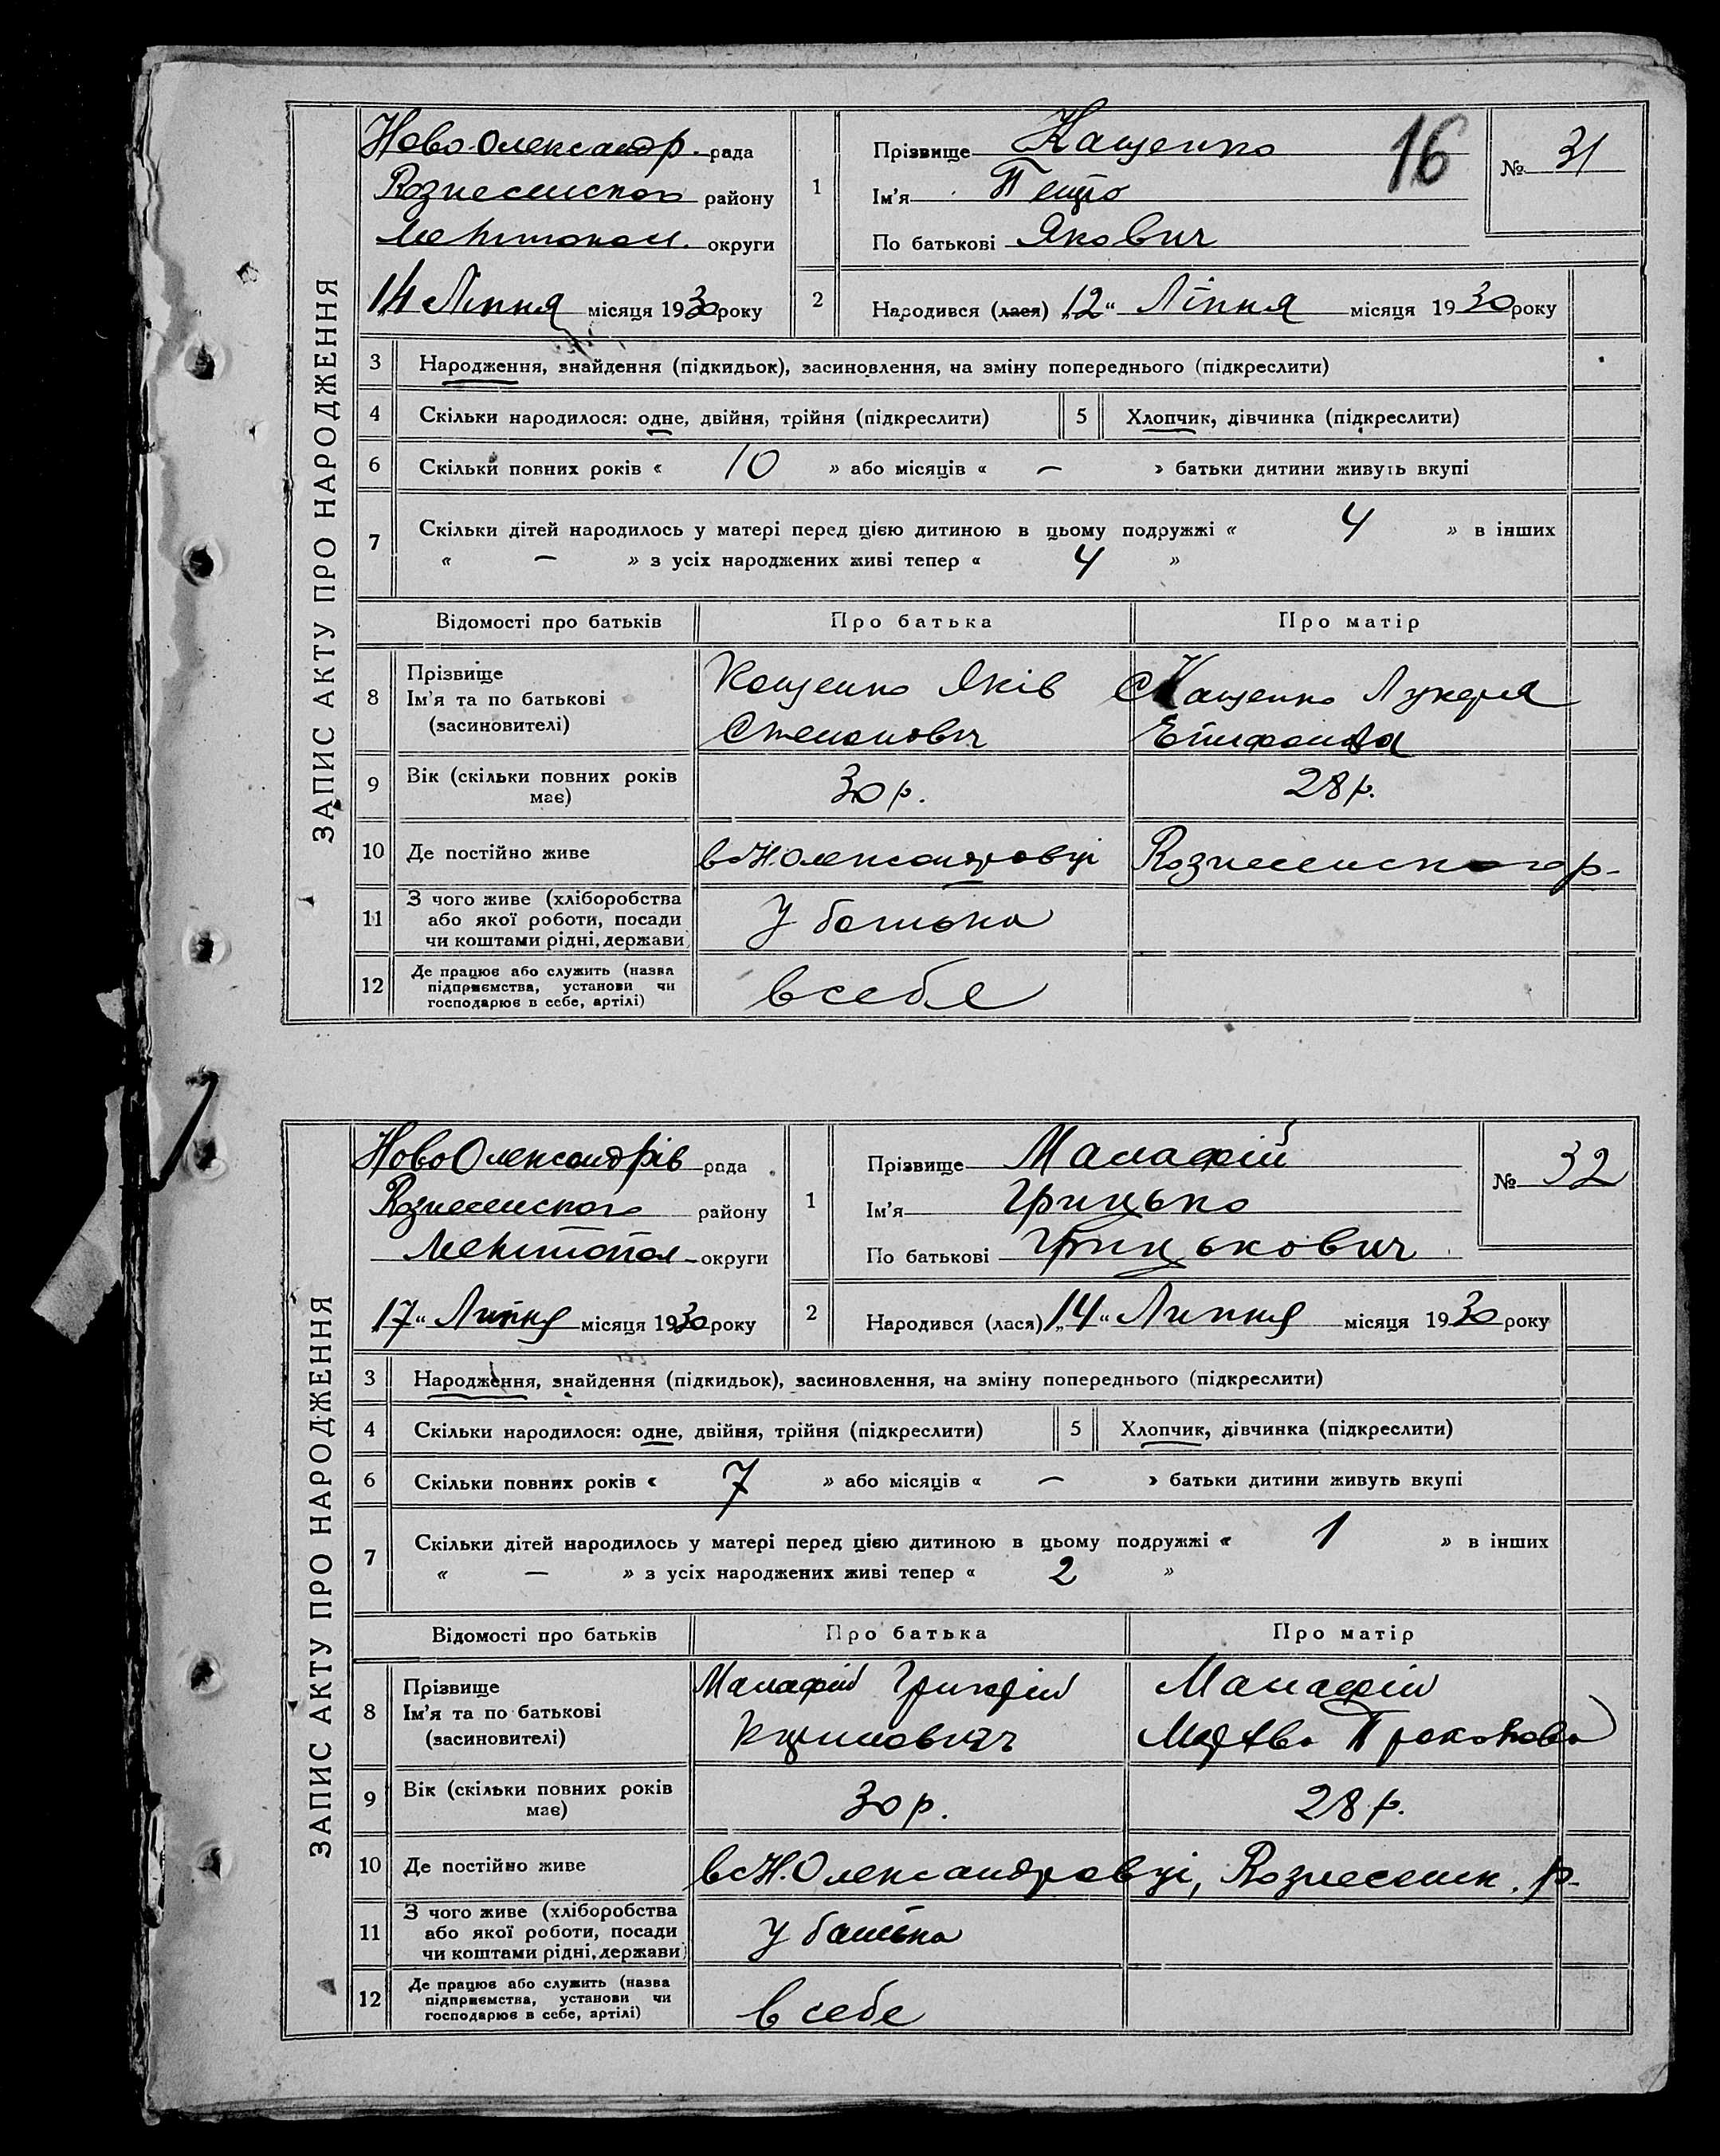 16
ЗАПИС АКТУ ПРО НАРОДЖЕННЯ
Ново-Олександр. рада
Вознесенского району
Мелітопол. округи
14 Ліпня місяця 1930 року
1 Прізвище Кащенко
Ім'я Петро
По батькові Якович
№ 31
2 Народився (лася) 12 " Ліпня місяця 1930 року
3 Народження, знайдення (підкидьок), засиновлення, на зміну попереднього (підкреслити)
4 Скільки народилося: одне, двійня, трійня (підкреслити) 5 Хлопчик, дівчинка (підкреслити)
6 Скільки повних років « 10 » або місяців « — » батьки дитини живуть вкупі
7 Скільки дітей народилось у матері перед цією дитиною в цьому подружжі « 4 » в інших
« — » з усіх народжених живі тепер « 4 »
Відомості про батьків Про батька Про матір
8 Прізвище
Ім'я та по батькові
(засиновителі)
Кащенко Яків
Степанович
Кащенко Лукеря
Епифанова
9 Вік (скільки повних років
має)
30 р. 28 р.
10 Де постійно живе в с Н. Олександровці Вознесенского р-
11 З чого живе (хліборобства
або якої роботи, посади
чи коштами рідні, держави)
У батька
12 Де працює або служить (назва
підприємства, установи чи
господарює в себе, артілі)
в себе
ЗАПИС АКТУ ПРО НАРОДЖЕННЯ
Ново Олександрів рада
Вознесенского району
Мелітопол округи
17 " Липня місяця 1930 року
1 Прізвище Малафій
Ім'я Грицько
По батькові Грицькович
№ 32
2 Народився (лася) „14 " Липня місяця 1930 року
3 Народження, знайдення (підкидьок), засиновлення, на зміну попереднього (підкреслити)
4 Скільки народилося: одне, двійня, трійня (підкреслити) 5 Хлопчик, дівчинка (підкреслити)
6 Скільки повних років « 7 » або місяців « — » батьки дитини живуть вкупі
7 Скільки дітей народилось у матері перед цією дитиною в цьому подружжі « 1 » в інших
« — » з усіх народжених живі тепер « 2 »
Відомості про батьків Про батька Про матір
8 Прізвище
Ім'я та по батькові
(засиновителі)
Малафій Григорій
Малафій
Прокопова
9 Вік (скільки повних років
має)
30 р. 28 р.
10 Де постійно живе в с Н. Олександровці, Вознесенск. р-
11 З чого живе (хліборобства
або якої роботи, посади
чи коштами рідні, держави)
У батька
12 Де працює або служить (назва
підприємства, установи чи
господарює в себе, артілі)
в себе